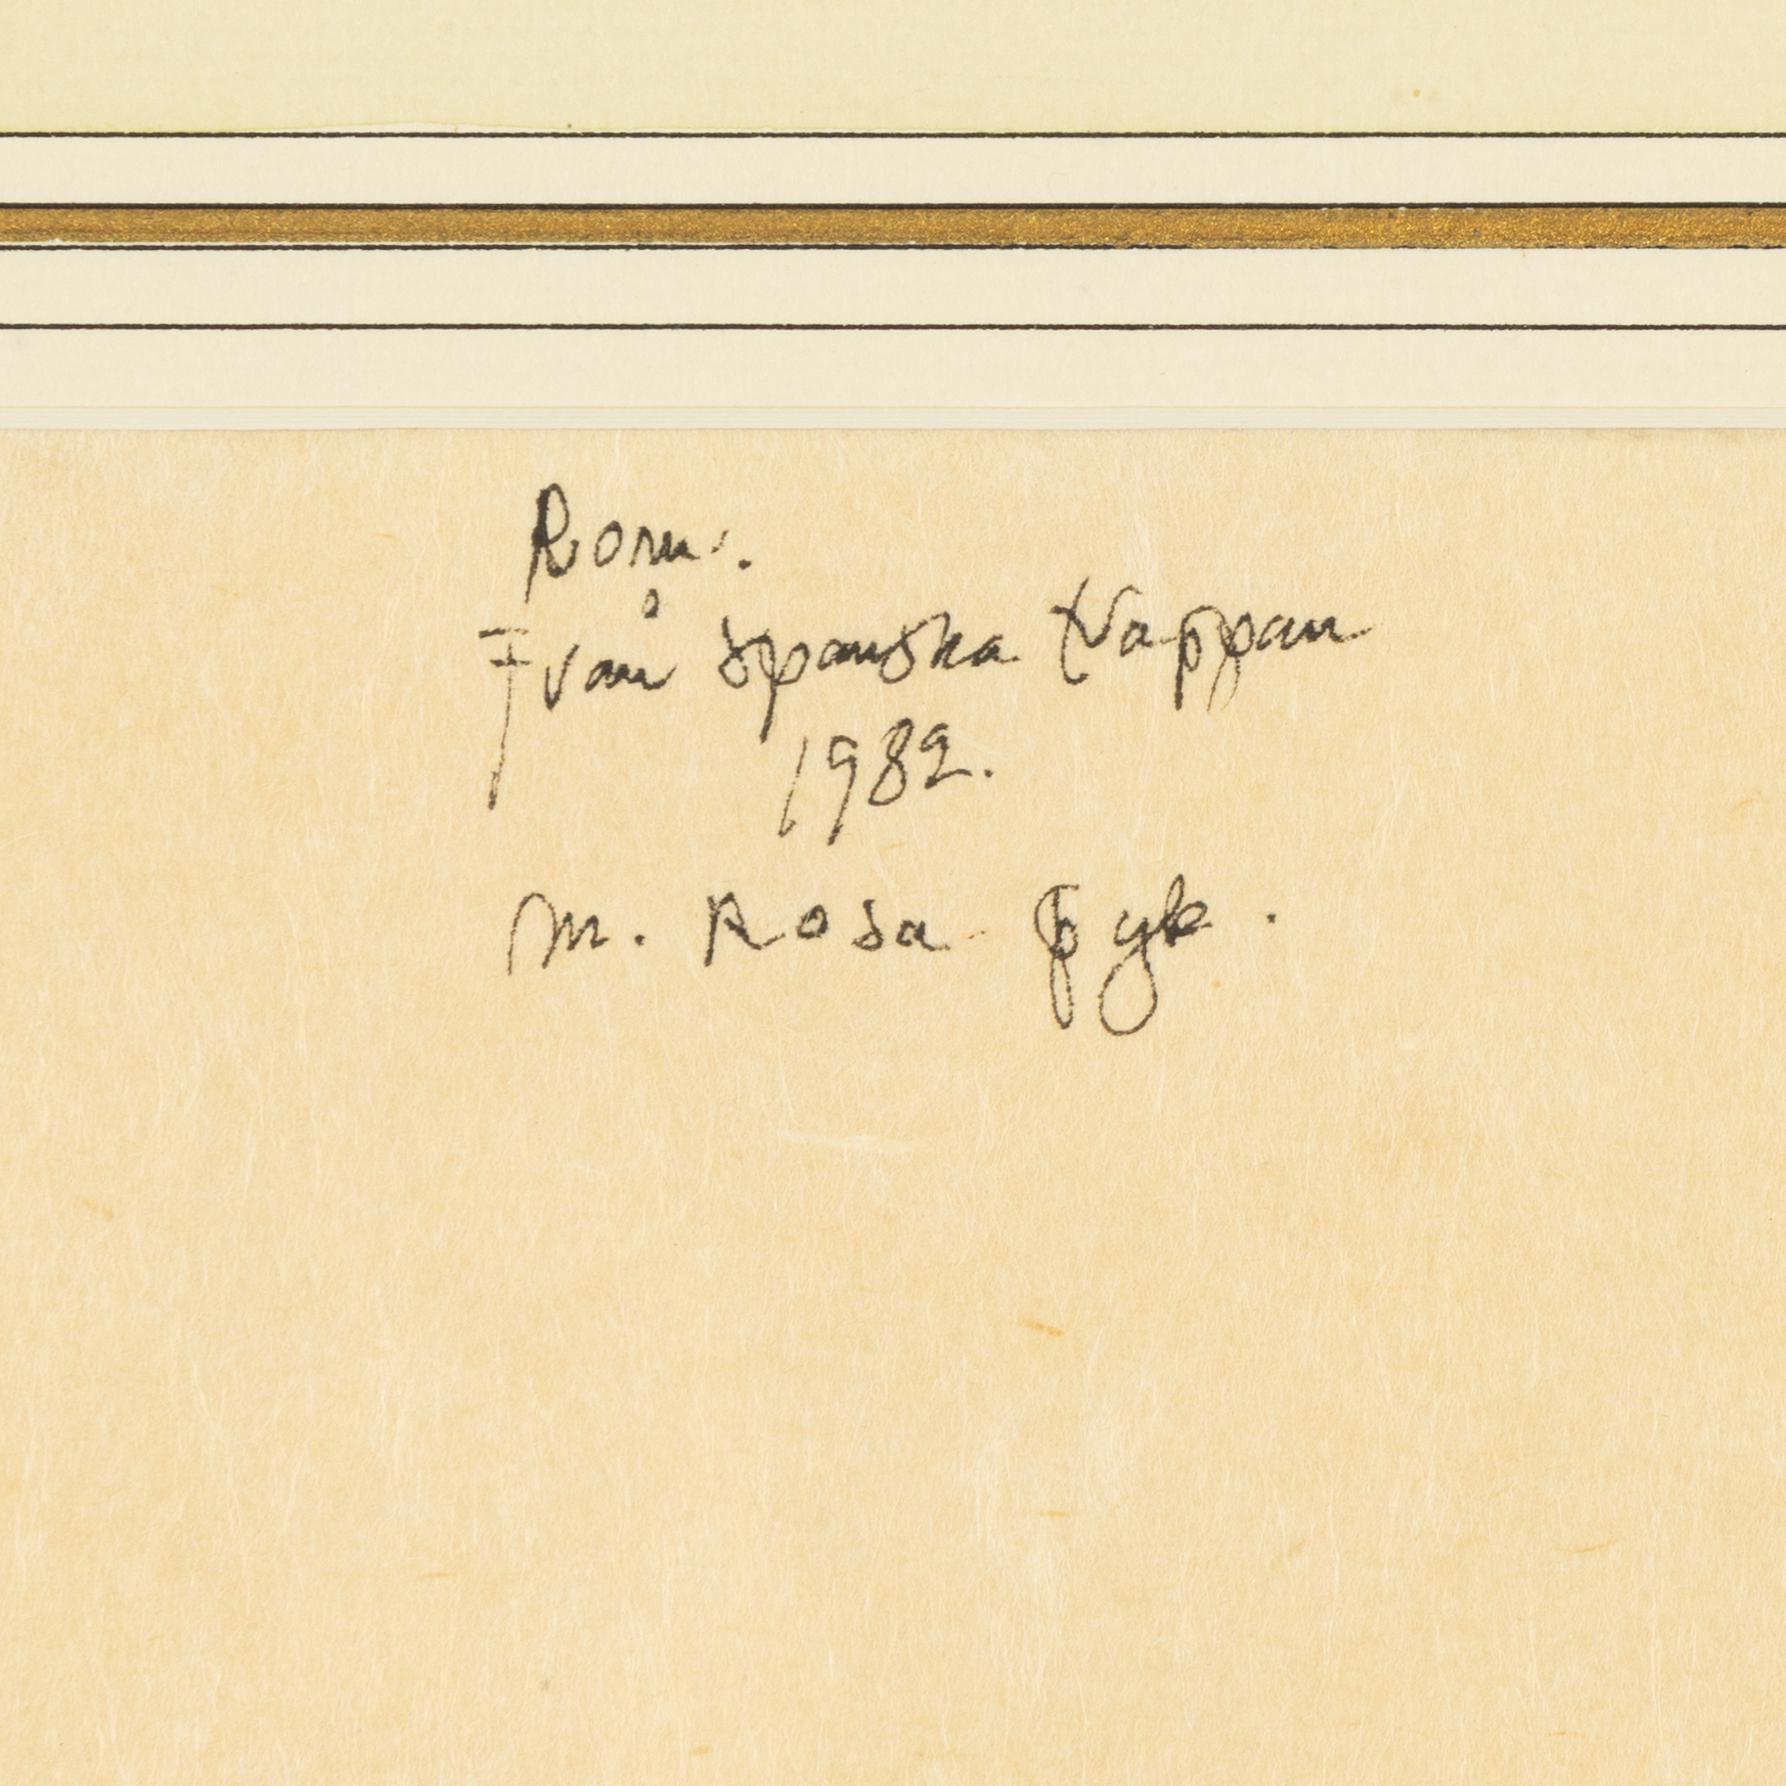 Rom.
Från Spanska trappan
1982.
M. Rosa Fyk.